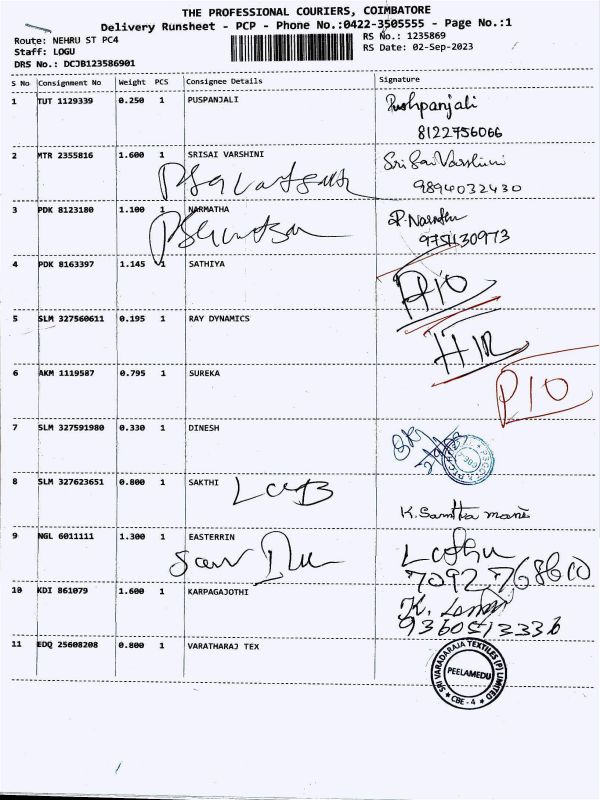 THE PROFESSIONAL COURIERS, COIMBATORE
Delivery Runsheet - PCP - Phone No.:0422-3505555 - Page No.:1
Route: NEHRU ST PC4
Staff: LOGU
DRS No.: DCJB123586901
RS No.: 1235869
RS Date: 02-Sep-2023
S No Consignment No Weight PCS Consignee Details Signature
1 TUT 1129339 0.250 1 PUSPANJALI Pushpanjali
8122756066
2 MTR 2355816 1.600 1 SRISAI VARSHINI Sri Sai Varshini
9894032430
3 PDK 8123180 1.100 1 NARMATHA
9751130973
4 PDK 8163397 1.145 1 SATHIYA
5 SLM 327560611 0.195 1 RAY DYNAMICS
6 AKM 1119587 0.795 1 SUREKA
PIO
7 SLM 327591980 0.330 1 DINESH
8 SLM 327623651 0.800 1 SAKTHI
9 NGL 6011111 1.300 1 EASTERRIN
10 KDI 861079 1.600 1 KARPAGAJOTHI
11 EDQ 25608208 0.800 1 VARATHARAJ TEX
SRI VARADARAJA TEXTILES (P) LIMITED
PEELAMEDU
CBE - 4